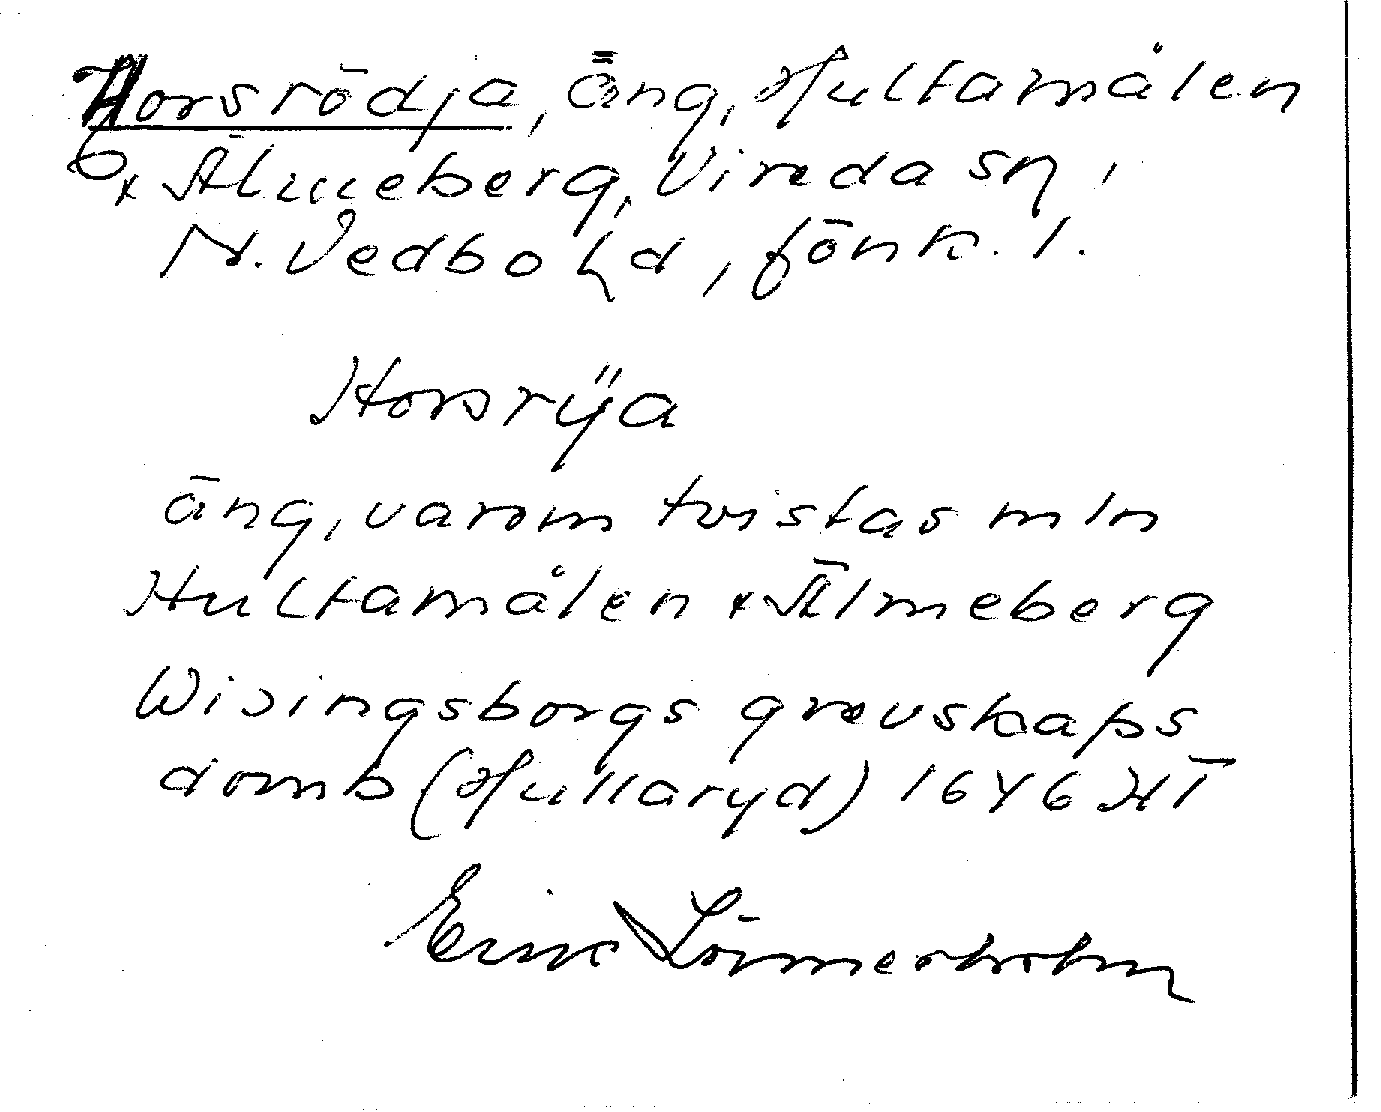 Horsrödja, äng, Hultamålen
& Älmeberg, Vireda sn,
N. Vedbo hd, Jönk. l.
Horsrÿa
äng, varom tvistas mln
Hultamålen & Älmeberg
Wisingsborgs grevskaps
domb (Hullaryd) 1646 HT
Erik Lönnerholm